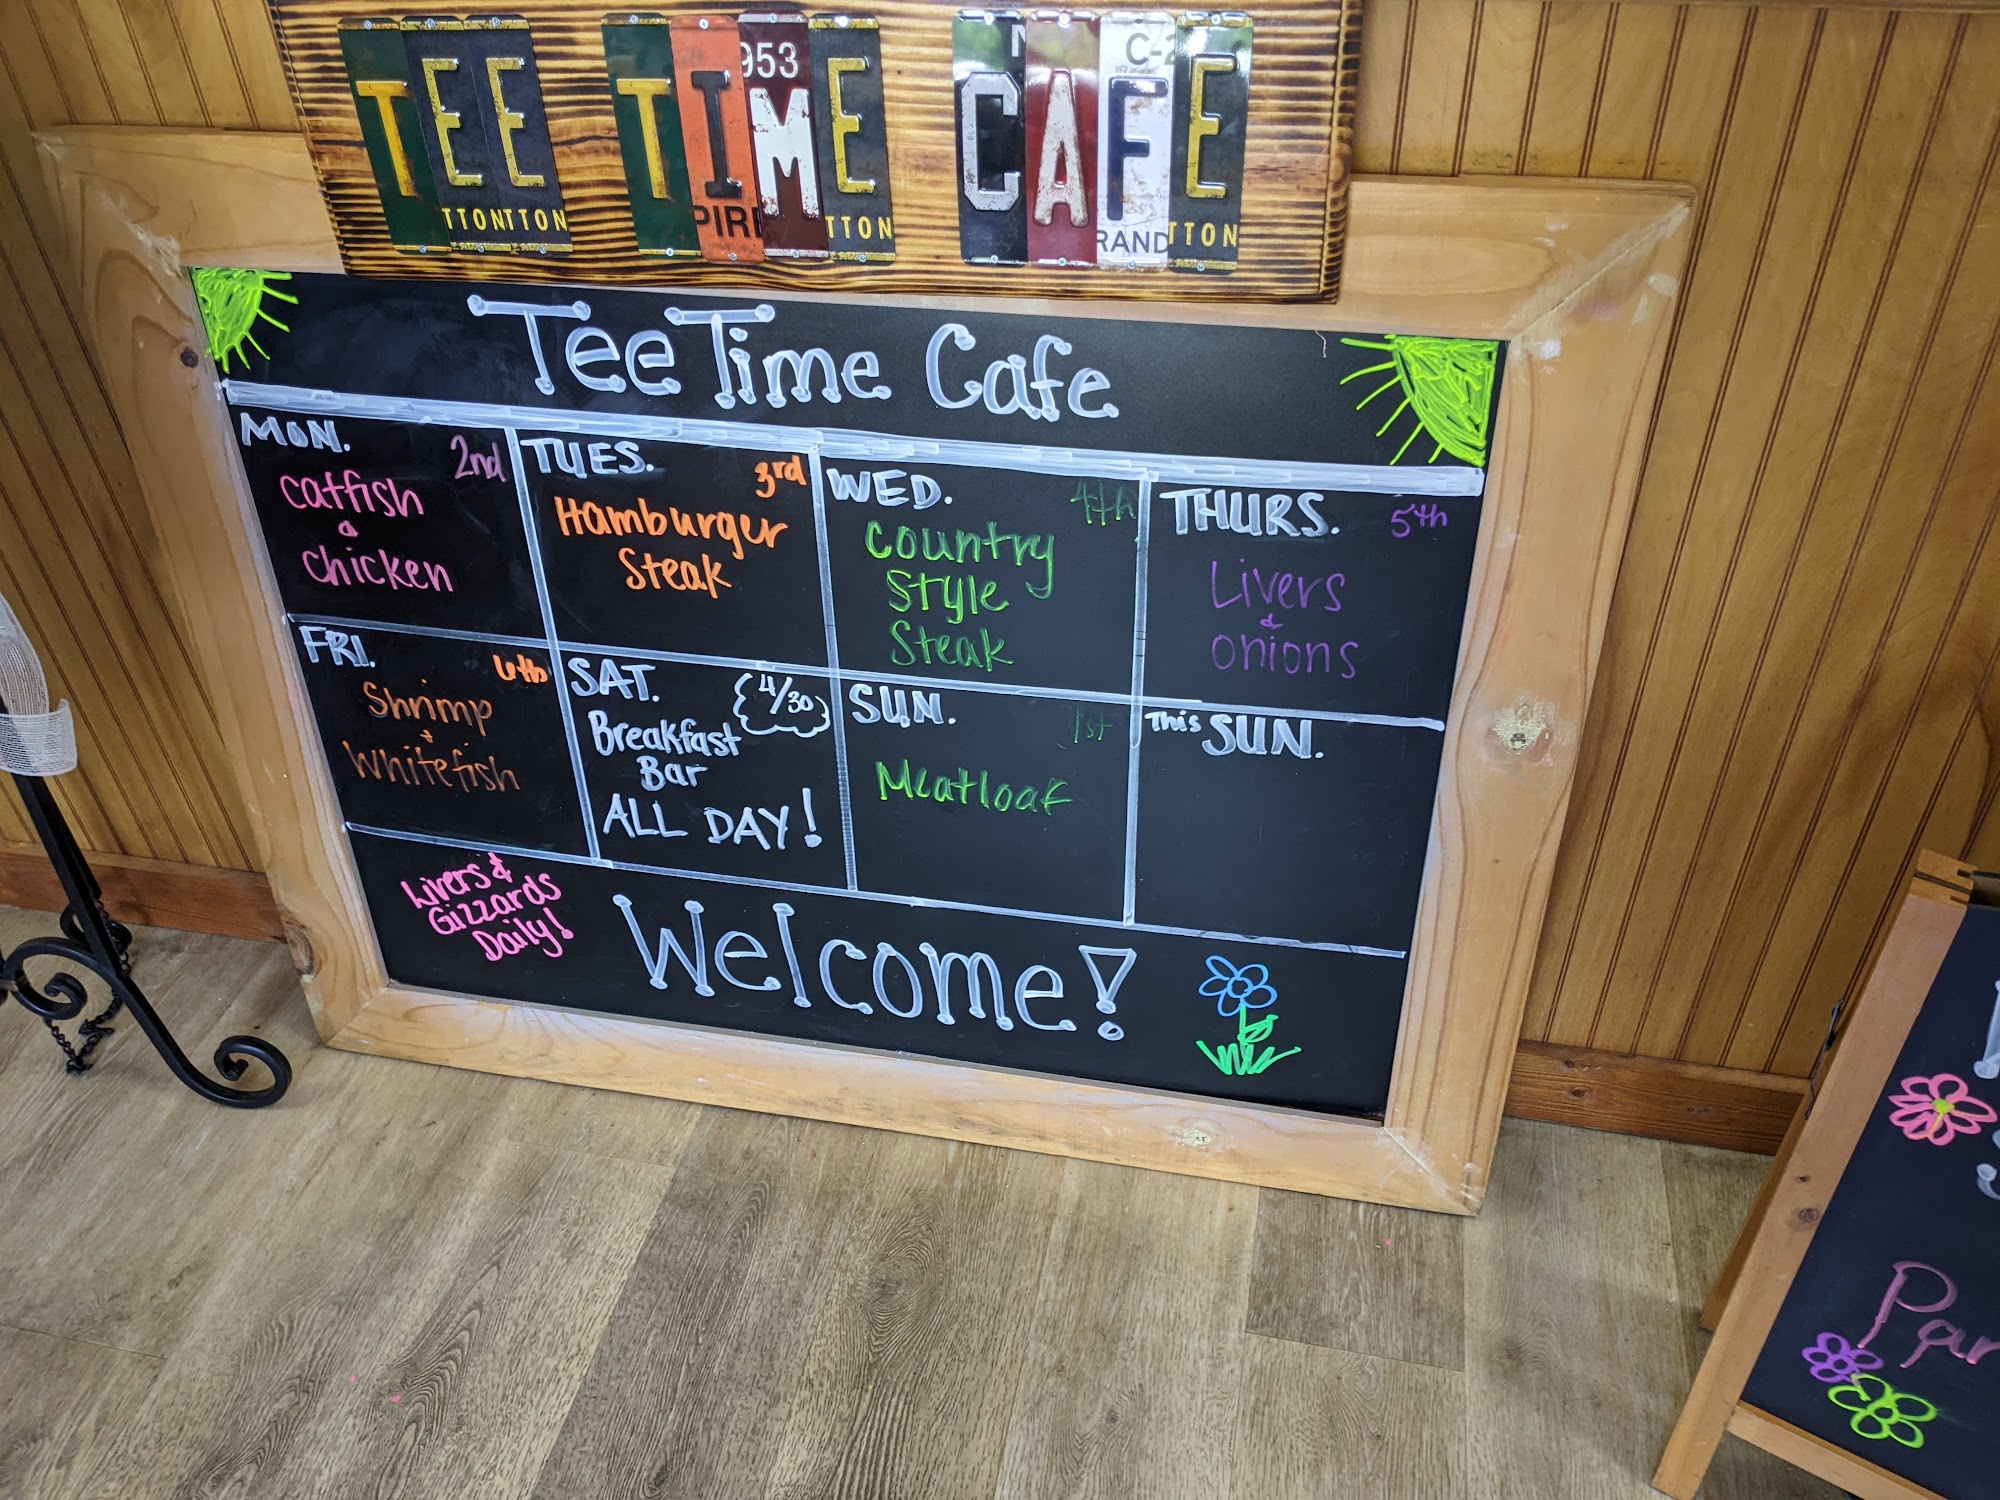 TEE TIME CAFE
953
N
C-2
TTON TTON
PIRE
TTON
RAND TTON
Tee Time Cafe
MON. 2nd
catfish
&
chicken
TUES. 3rd
Hamburger
Steak
WED. 4th
Country
Style
Steak
THURS. 5th
Livers
&
onions
FRI. 6th
Shrimp
&
Whitefish
SAT. 4/30
Breakfast
Bar
ALL DAY!
SUN. 1st
Meatloaf
This SUN.
Livers &
Gizzards
Daily!
Welcome!
Par